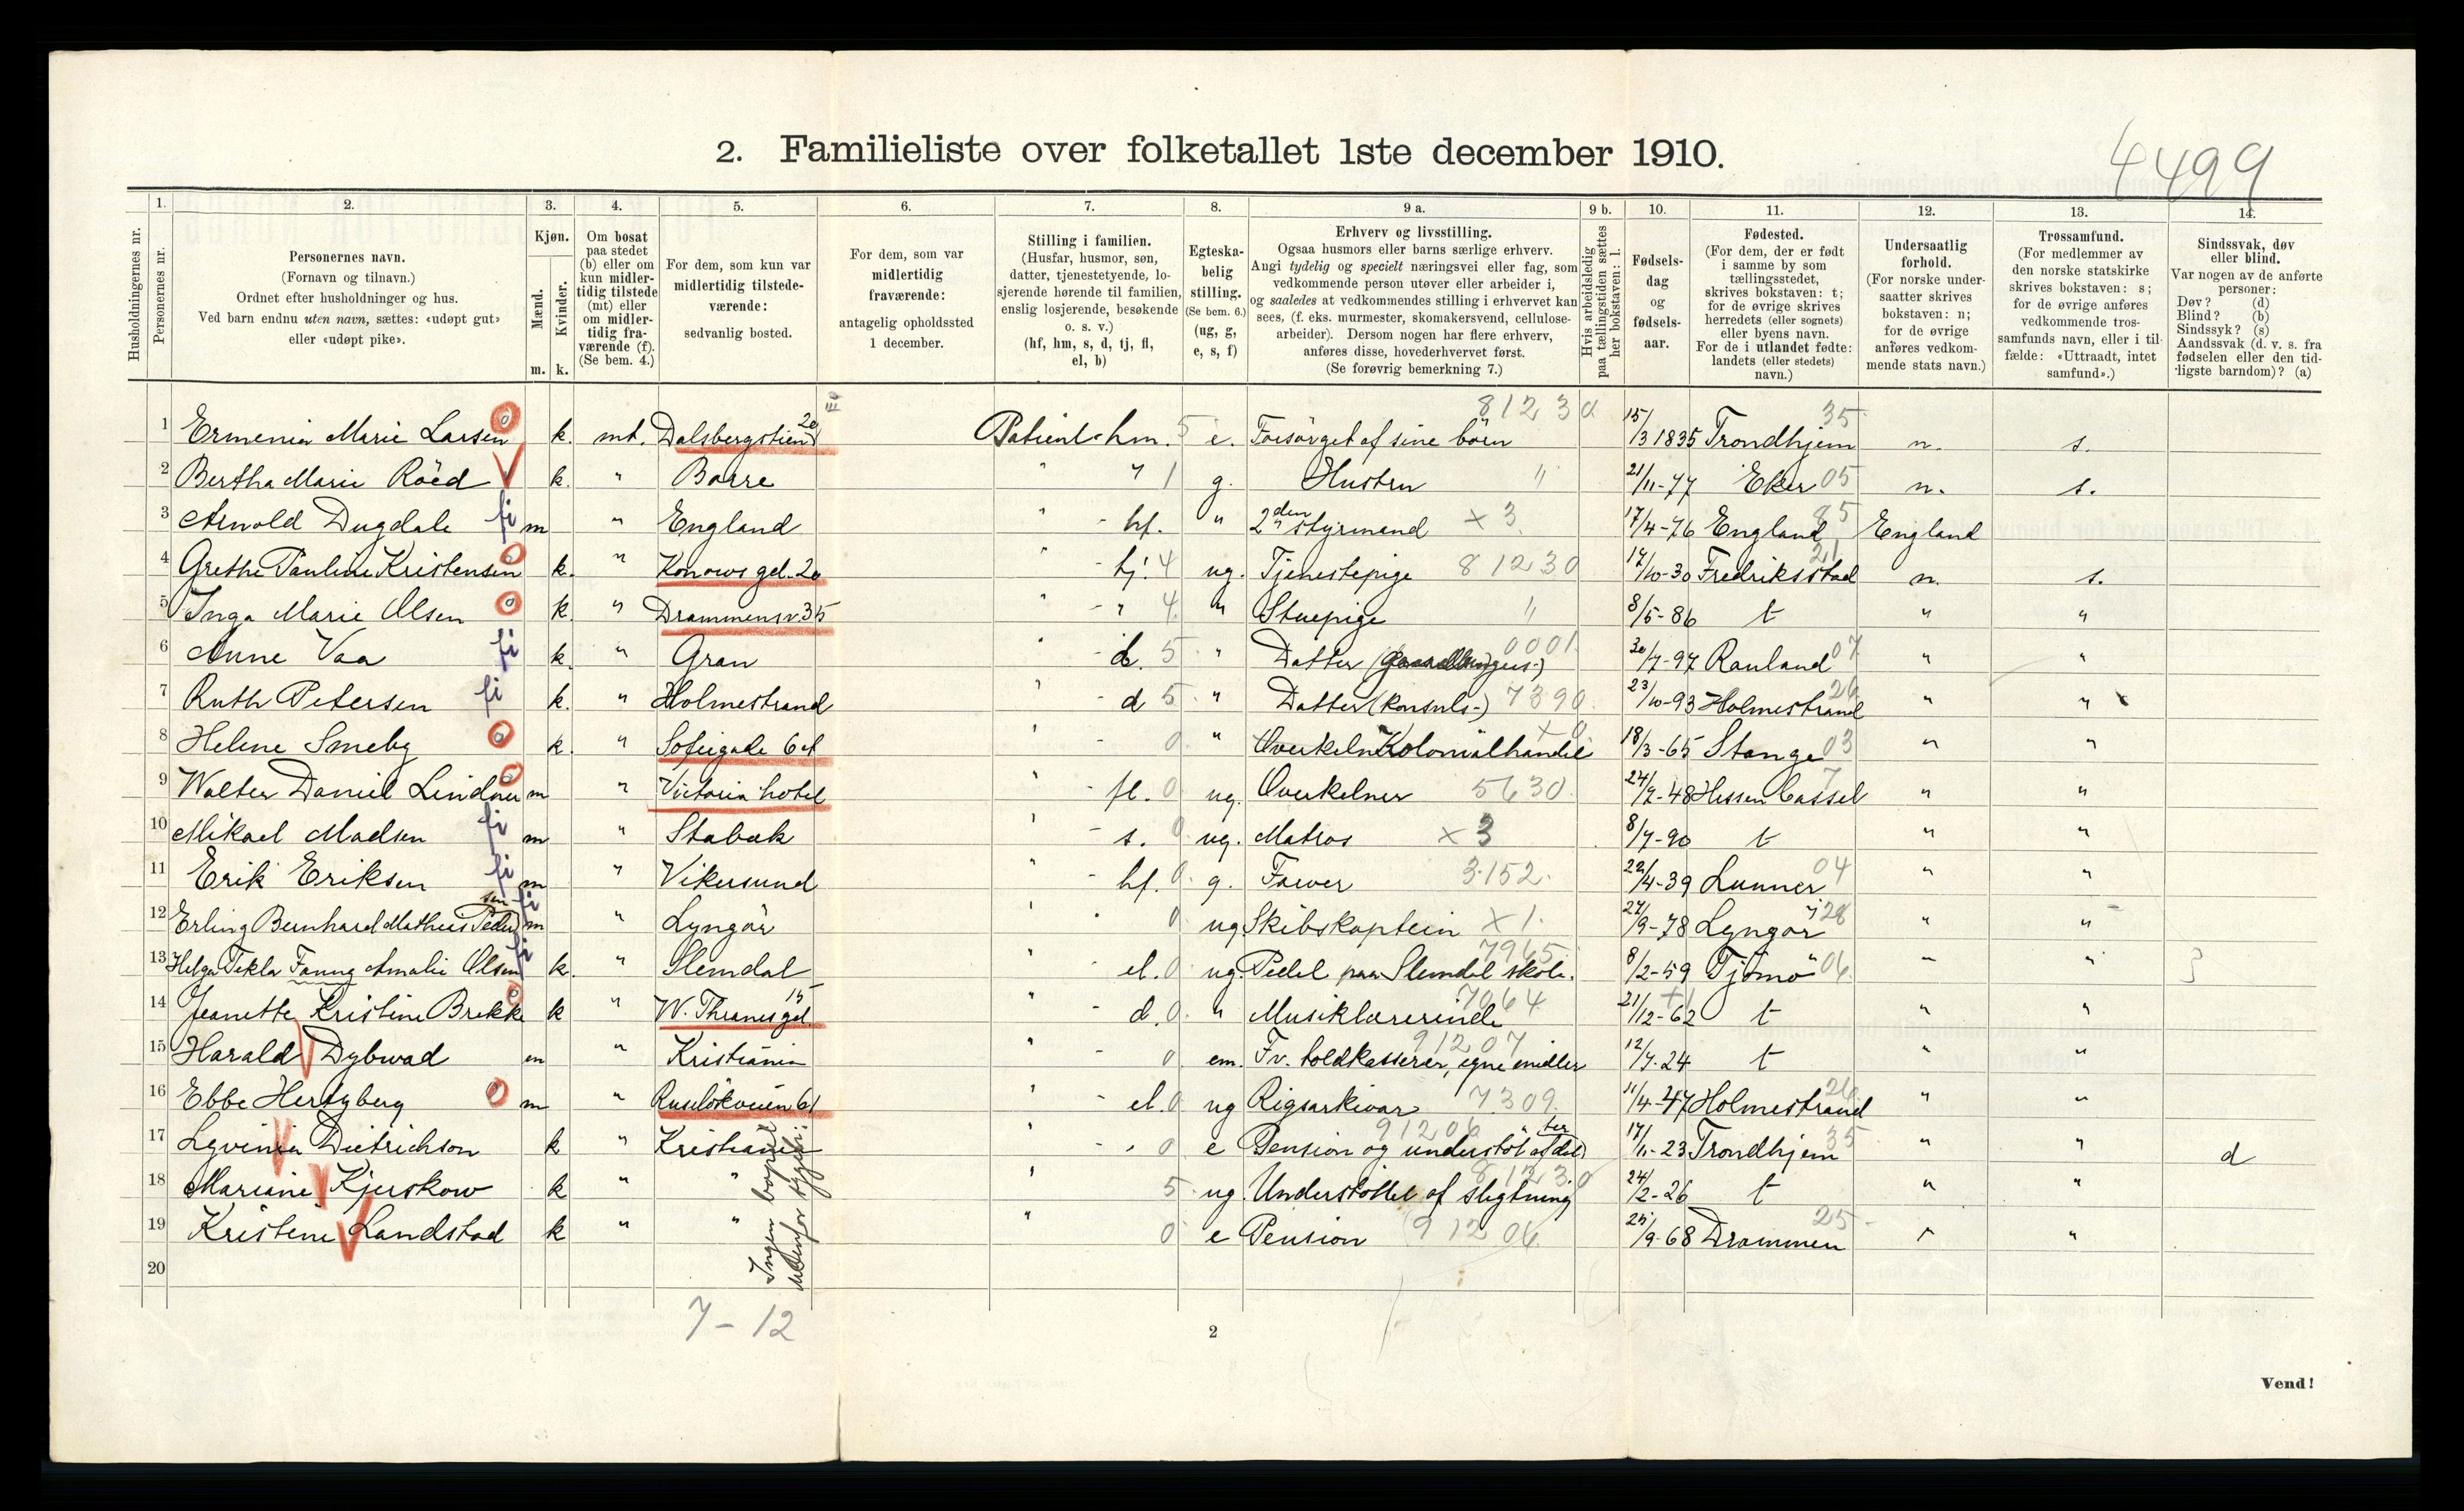 4499
2. Familieliste over folketallet 1ste december 1910.
1. 2. 3. 4. 5. 6. 7. 8. 9 a. 9 b. 10. 11. 12. 13. 14.
Husholdningernes nr.
Personernes nr.
Personernes navn.
(Fornavn og tilnavn.)
Ordnet efter husholdninger og hus.
Ved barn endnu uten navn, sættes: «udøpt gut»
eller «udøpt pike».
Kjøn.
Mænd.
Kvinder.
m. k.
Om bosat
paa stedet
(b) eller om
kun midler-
tidig tilstede
(mt) eller
om midler-
tidig fra-
værende (f).
(Se bem. 4.)
For dem, som kun var
midlertidig tilstede-
værende:
sedvanlig bosted.
For dem, som var
midlertidig
fraværende:
antagelig opholdssted
1 december.
Stilling i familien.
(Husfar, husmor, søn,
datter, tjenestetyende, lo-
sjerende hørende til familien,
enslig losjerende, besøkende
o. s. v.)
(hf, hm, s, d, tj, fl,
el, b)
Egteska-
belig
stilling.
(Se bem. 6.)
(ug, g,
e, s, f)
Erhverv og livsstilling.
Ogsaa husmors eller barns særlige erhverv.
Angi tydelig og specielt næringsvei eller fag, som
vedkommende person utøver eller arbeider i,
og saaledes at vedkommendes stilling i erhvervet kan
sees, (f. eks. murmester, skomakersvend, cellulose-
arbeider). Dersom nogen har flere erhverv,
anføres disse, hovederhvervet først.
(Se forøvrig bemerkning 7.)
Hvis arbeidsledig
paa tællingstiden sættes
her bokstaven: l.
Fødsels-
dag
og
fødsels-
aar.
Fødested.
(For dem, der er født
i samme by som
tællingsstedet,
skrives bokstaven: t;
for de øvrige skrives
herredets (eller sognets)
eller byens navn.
For de i utlandet fødte:
landets (eller stedets)
navn.)
Undersaatlig
forhold.
(For norske under-
saatter skrives
bokstaven: n;
for de øvrige
anføres vedkom-
mende stats navn.)
Trossamfund.
(For medlemmer av
den norske statskirke
skrives bokstaven: s;
for de øvrige anføres
vedkommende tros-
samfunds navn, eller i til-
fælde: «Uttraadt, intet
samfund».)
Sindssvak, døv
eller blind.
Var nogen av de anførte
personer:
Døv? (d)
Blind? (b)
Sindssyk? (s)
Aandssvak (d. v. s. fra
fødselen eller den tid-
ligste barndom)? (a)
1 Ermenia Marie Larsen k. mt. Dalsbergstien 20 III Patient - hm. 5 e. Forsørget af sine børn 81230 15/3 1835 Trondhjem 35 n. s.
2 Bertha Marie Röed k. " Borre " " 1 g. Hustru " 21/11-77 Eker 05 n. s.
3 Arnold Dugdale fi m " England " - hf. " 2den styrmand x 3 17/4-76 England 85 England
4 Grethe Pauline Kristensen k. " Konows gd. 20 " - tj. 4 ug. Tjenestepige 81230 14/10-30 Fredriksstad 21 n. s.
5 Inga Marie Olsen k. " Drammensv. 35 " - " 4. " Stuepige " 8/5-86 t " "
6 Anne Vaa fi k. " Gran - d. 5 " Datter 0001 20/7-97 Rauland 07 " "
7 Ruth Petersen fi k. " Holmestrand " - d 5 " Datter (Konsuls-) 7390 23/10-93 Holmestrand 26 " "
8 Helene Smeby k. " Sofiegade 6 " - 0 " Kolonialhandel x 0 18/3-65 Stange 03 " "
9 Walter Daniel Lindner m " Victoria hotel " - fl. 0 ug. Overkelner 5630 24/7-48 Hessen Cassel 7 " "
10 Mikael Madsen fi m " Stabæk " - s. 0 ug. Matros x 3 8/7-90 t " "
11 Erik Eriksen fi m " Vikersund " - hf. 0. g. Farver 3152. 22/4-39 Lunner 04 " "
12 Erling Bernhard Mathias Pedersen fi m " Lyngör " 0 ug Skibskaptein x 1. 27/9-78 Lyngör 28 " "
13 Helga Tekla Fanny Amalie Olsen fi k. " Slemdal " - el. 0 ug. Pedel paa Slemdal skole. 7965 8/2-59 Tjömö 06 " "
14 Jeanette Kristine Brekke k " W. Thranes gd. 15 " - d. 0. " Musiklærerinde 7064 21/12-62 t " "
15 Harald Dybwad m " Kristiania " - 0 em. Fv. toldkasserer, egne midler 91207 12/7-24 t " "
16 Ebbe Hertzberg m " Ruselökveien 61 " - el. 0 ug Rigsarkivar 7309 11/4-47 Holmestrand 26 " "
17 Lyvinia Dietrichson k " Kristiania " - " 0 e Pension og understöt af 91206 17/11-23 Trondhjem 35 " " d
18 Mariane Kjerskow k " " " 5 ug. Understöttet af slegtning 81230 24/2-26 t " "
19 Kristine Landstad k " " " 0 e Pension 91206 25/9-68 Drammen 25 " "
20
Ingen bopæl
udenfor
7-12
2
Vend!